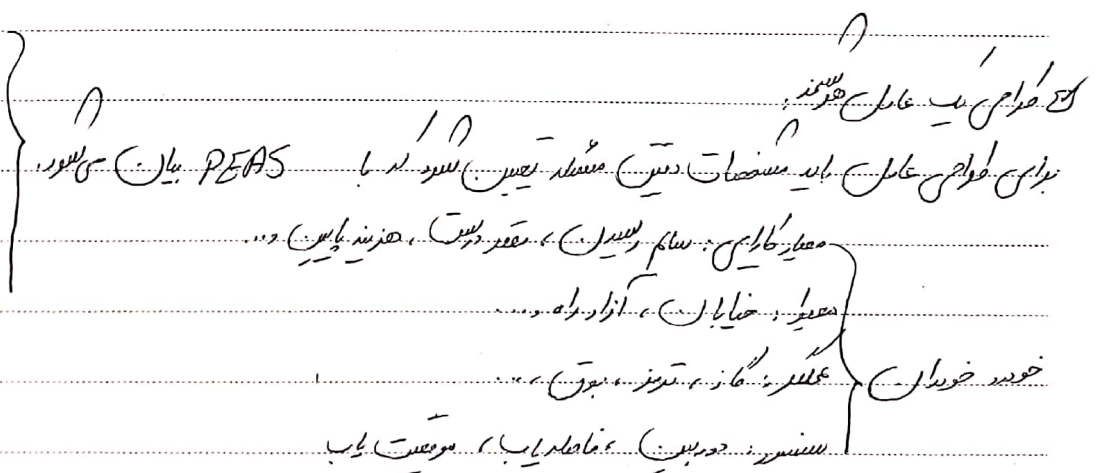 طراحی یک عامل هوشمند:
برای طراحی عامل باید مشخصات دقیق مسئله تعیین شود که با PEAS بیان می‌شود.
معیار کارایی: سالم رسیدن، مقصد درست، هزینه پایین و...
محیط: خیابان، آزاد راه و...
خودرو خودران عملگر: گاز، ترمز، بوق، ...
سنسور: دوربین، فاصله یاب، موقعیت یاب